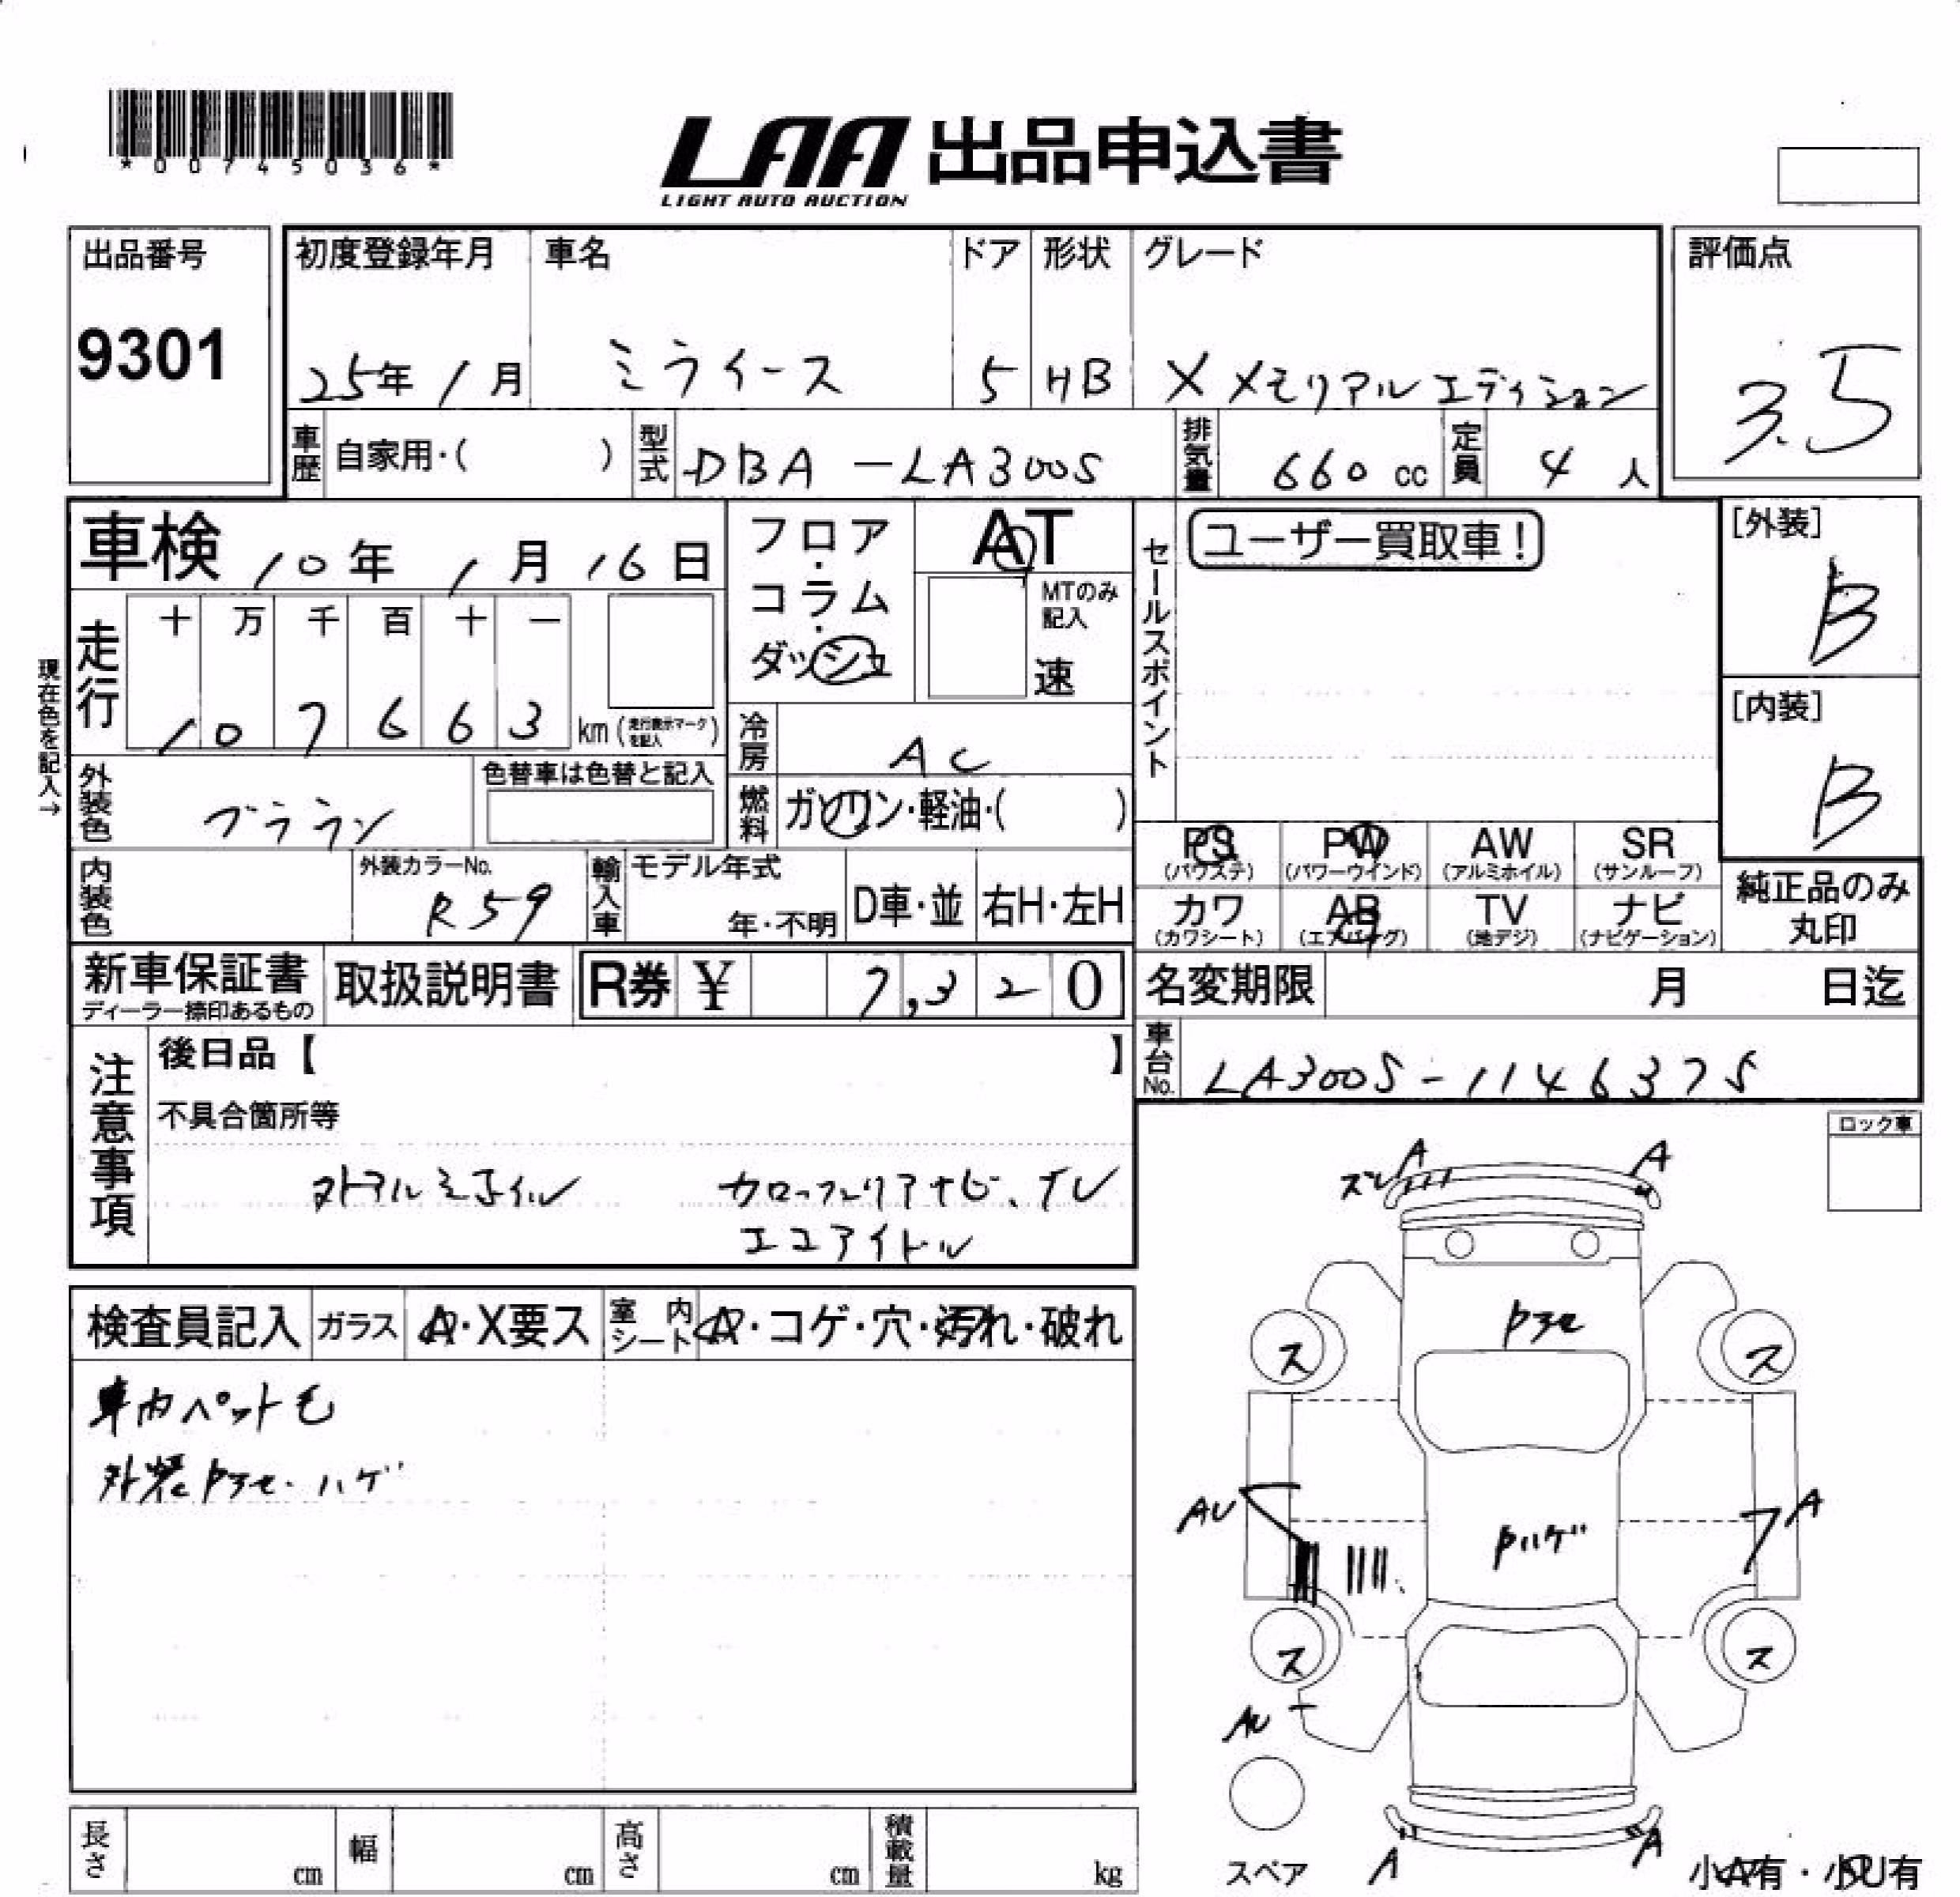 *00745036*
LAA 出品申込書
LIGHT AUTO AUCTION
出品番号 9301
初度登録年月 25年 1月
車名 ミライース
ドア 5
形状 HB
グレード X メモリアルエディション
評価点 3.5
車歴 自家用・( )
型式 DBA-LA300S
排気量 660 cc
定員 4 人
車検 10年 1月 16日
フロア・コラム・ダッシュ
AT
MTのみ記入
速
セールスポイント
ユーザー買取車!
[外装] B
[内装] B
現在色を記入→
走行 十 万 千 百 十 一
1 0 7 6 6 3 km (走行表示マークを記入)
冷房 AC
外装色
色替車は色替と記入
燃料 ガソリン・軽油・( )
内装色
外装カラーNo. R59
輸入車 モデル年式 年・不明
D車・並
右H・左H
PS (パワステ)
PW (パワーウインド)
AW (アルミホイル)
SR (サンルーフ)
カワ (カワシート)
AB (エアバッグ)
TV (地デジ)
ナビ (ナビゲーション)
純正品のみ丸印
新車保証書
ディーラー捺印あるもの
取扱説明書
R券 ¥ 7,320
名変期限 月 日迄
車台No. LA300S-1146375
注意事項
後日品【 】
不具合箇所等
カロッツェリアナビ、TV
エコアイドル
ロック車
検査員記入
ガラス A・X要ス
室内シート A・コゲ・穴・汚れ・破れ
車内ペット毛
外装P
ハゲ
A
A
ズレ
ス
ス
AU
Pハゲ
A
ス
ス
AU
A
A
スペア
小A有・小U有
長さ cm
幅 cm
高さ cm
積載量 kg